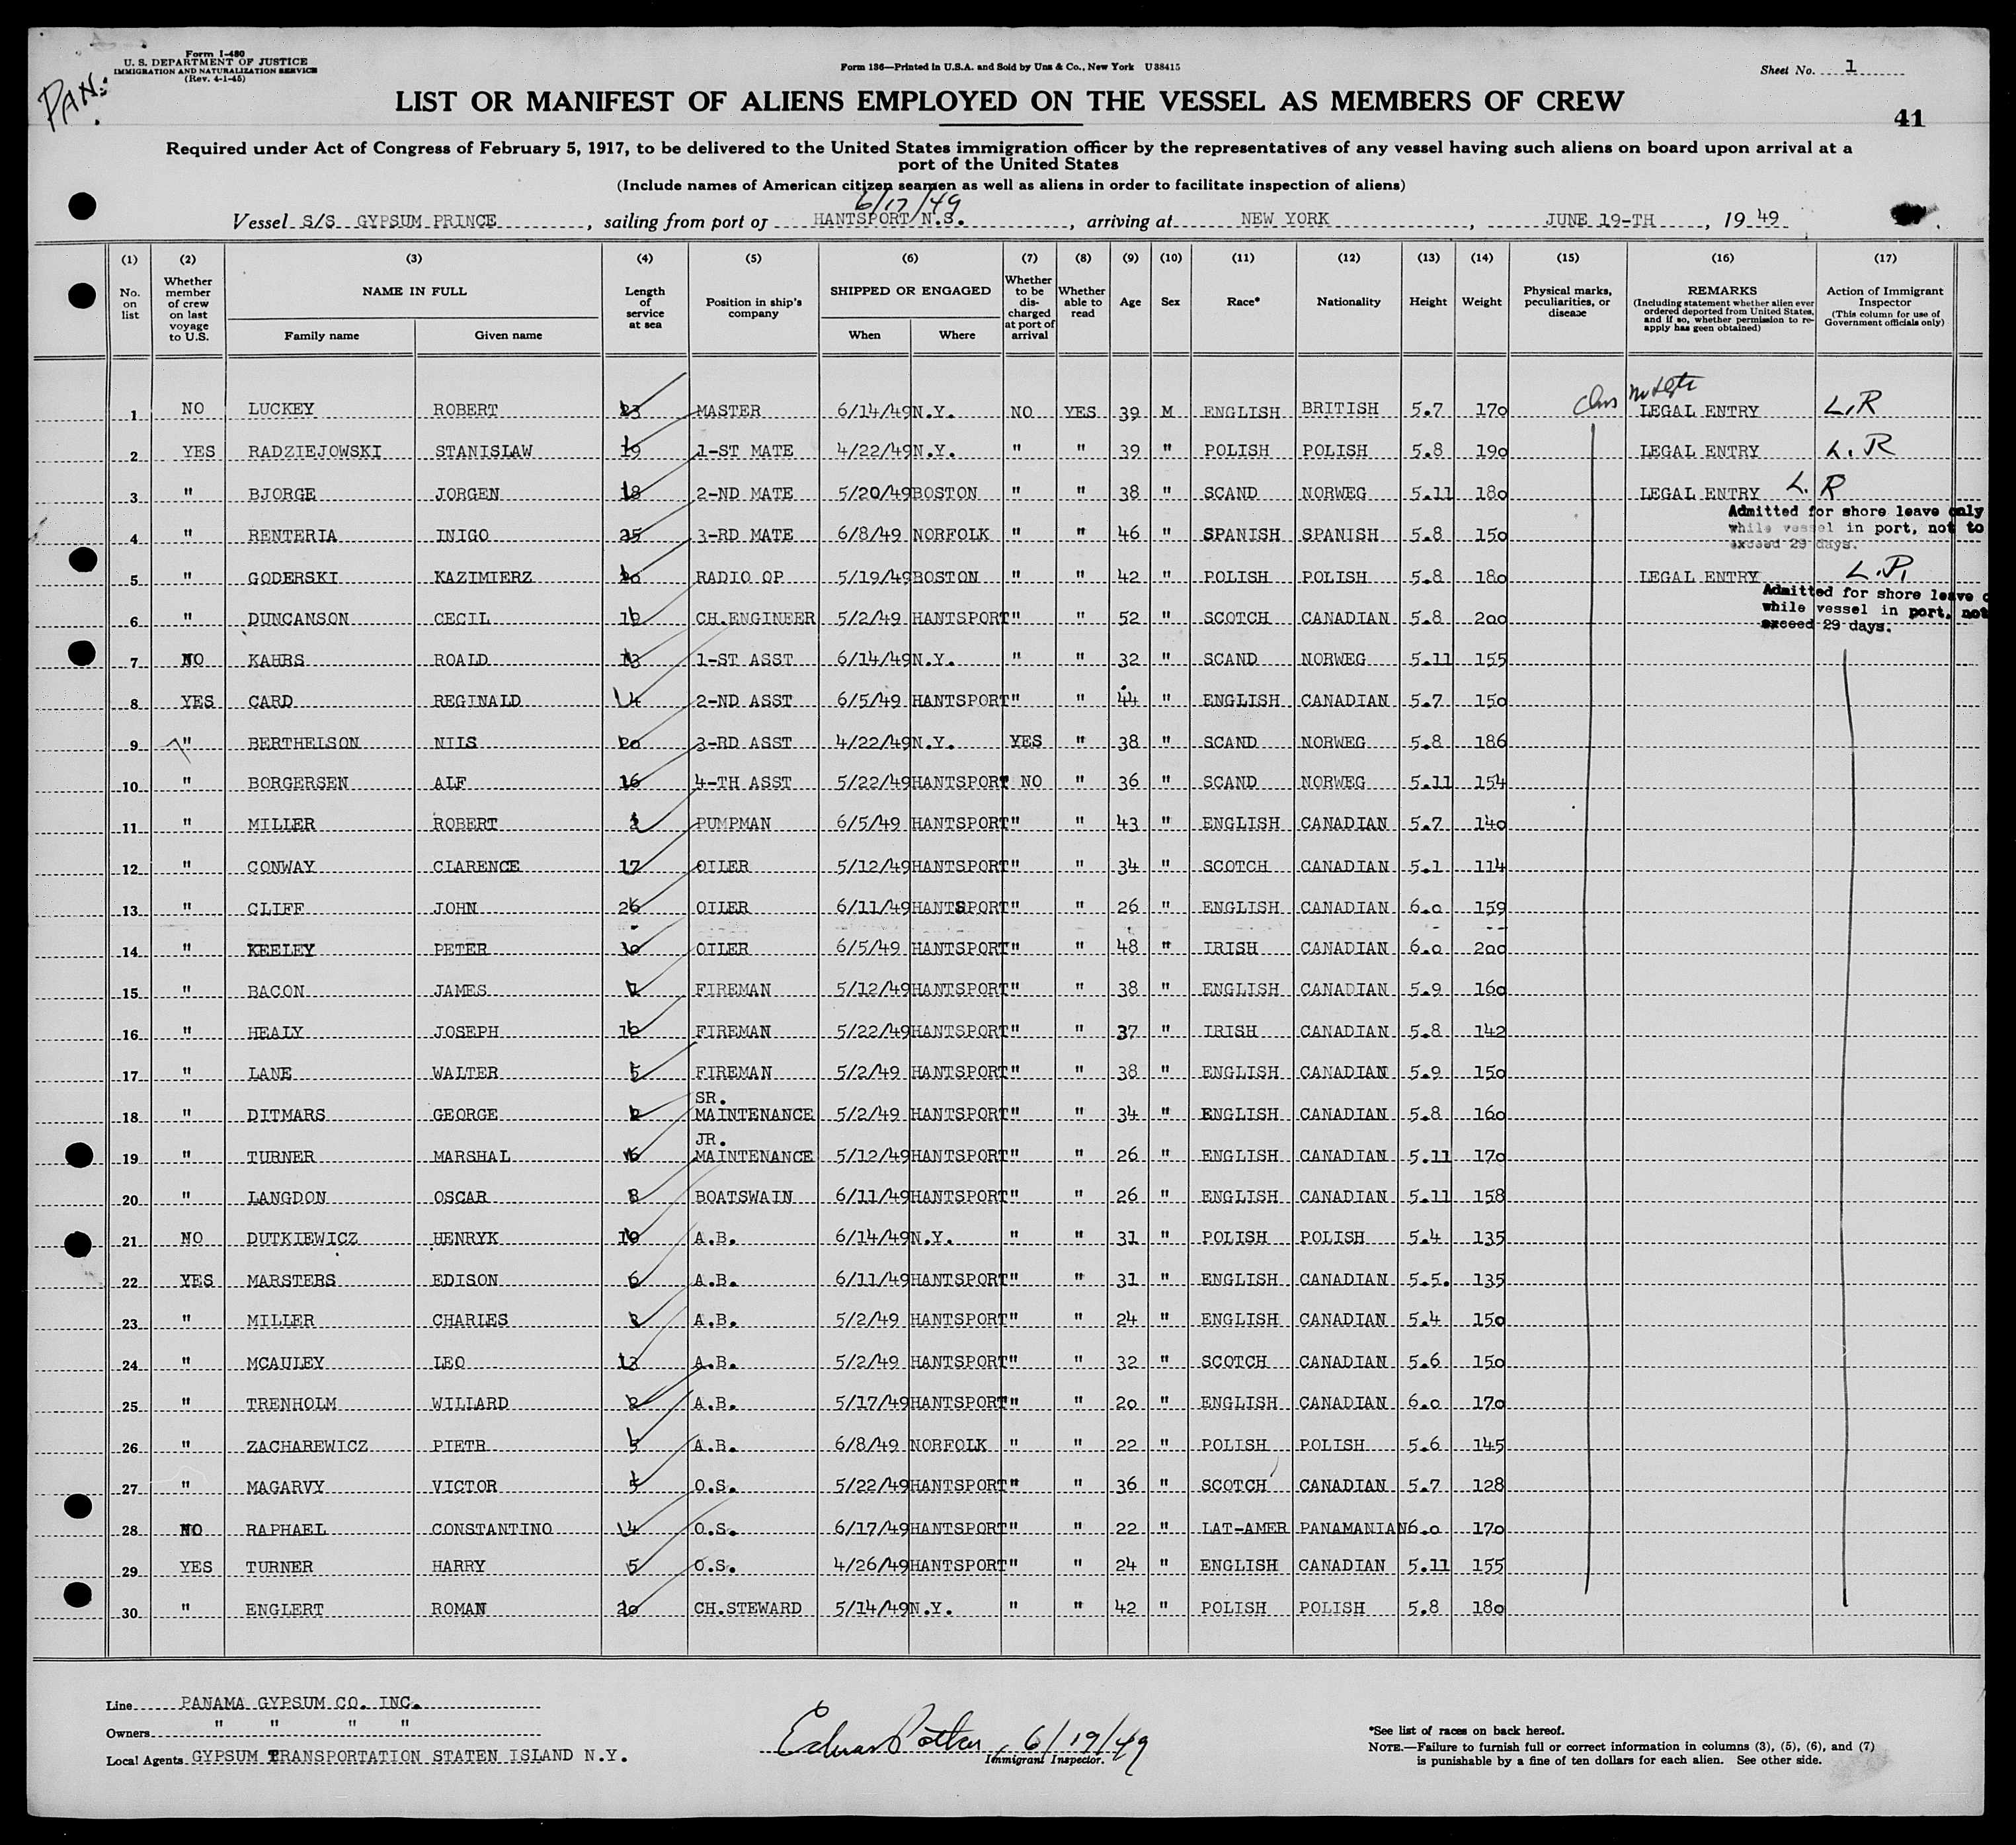 Form I-480
U. S. DEPARTMENT OF JUSTICE
IMMIGRATION AND NATURALIZATION SERVICE
(Rev. 4-1-45)
PAN.
Form 136—Printed in U.S.A. and Sold by Unz & Co., New York U38415
Sheet No. 1
LIST OR MANIFEST OF ALIENS EMPLOYED ON THE VESSEL AS MEMBERS OF CREW
41
Required under Act of Congress of February 5, 1917, to be delivered to the United States immigration officer by the representatives of any vessel having such aliens on board upon arrival at a
port of the United States
(Include names of American citizen seamen as well as aliens in order to facilitate inspection of aliens)
6/17/49
Vessel S/S GYPSUM PRINCE, sailing from port of HANTSPORT N.S., arriving at NEW YORK, JUNE 19-TH, 19 49
(1) (2) (3) (4) (5) (6) (7) (8) (9) (10) (11) (12) (13) (14) (15) (16) (17)
No. on list
Whether member of crew on last voyage to U.S.
NAME IN FULL
Family name Given name
Length of service at sea
Position in ship's company
SHIPPED OR ENGAGED
When Where
Whether to be discharged at port of arrival
Whether able to read
Age
Sex
Race*
Nationality
Height
Weight
Physical marks, peculiarities, or disease
REMARKS
(Including statement whether alien ever ordered deported from United States, and if so, whether permission to reapply has geen obtained)
Action of Immigrant Inspector
(This column for use of Government officials only)
1 NO LUCKEY ROBERT 23 MASTER 6/14/49 N.Y. NO YES 39 M ENGLISH BRITISH 5.7 170 LEGAL ENTRY L.R
2 YES RADZIEJOWSKI STANISLAW 19 1-ST MATE 4/22/49 N.Y. " " 39 " POLISH POLISH 5.8 190 LEGAL ENTRY L.R
3 " BJORGE JORGEN 18 2-ND MATE 5/20/49 BOSTON " " 38 " SCAND NORWEG 5.11 180 LEGAL ENTRY L.R
Admitted for shore leave only
while vessel in port, not to
exceed 29 days.
4 " RENTERIA INIGO 25 3-RD MATE 6/8/49 NORFOLK " " 46 " SPANISH SPANISH 5.8 150
5 " GODERSKI KAZIMIERZ 20 RADIO OP 5/19/49 BOSTON " " 42 " POLISH POLISH 5.8 180 LEGAL ENTRY L.R.
Admitted for shore leave
while vessel in port, not
exceed 29 days.
6 " DUNCANSON CECIL CH.ENGINEER 5/2/49 HANTSPORT " " 52 " SCOTCH CANADIAN 5.8 200
7 NO KAHRS ROALD 13 1-ST ASST 6/14/49 N.Y. " " 32 " SCAND NORWEG 5.11 155
8 YES CARD REGINALD 14 2-ND ASST 6/5/49 HANTSPORT " " 44 " ENGLISH CANADIAN 5.7 150
9 " BERTHELSON NILS 20 3-RD ASST 4/22/49 N.Y. YES " 38 " SCAND NORWEG 5.8 186
10 " BORGERSEN ALF 16 4-TH ASST 5/22/49 HANTSPORT NO " 36 " SCAND NORWEG 5.11 154
11 " MILLER ROBERT PUMPMAN 6/5/49 HANTSPORT " " 43 " ENGLISH CANADIAN 5.7 140
12 " CONWAY CLARENCE 17 OILER 5/12/49 HANTSPORT " " 34 " SCOTCH CANADIAN 5.1 114
13 " CLIFF JOHN 26 OILER 6/11/49 HANTSPORT " " 26 " ENGLISH CANADIAN 6.0 159
14 " KEELEY PETER 30 OILER 6/5/49 HANTSPORT " " 48 " IRISH CANADIAN 6.0 200
15 " BACON JAMES FIREMAN 5/12/49 HANTSPORT " " 38 " ENGLISH CANADIAN 5.9 160
16 " HEALY JOSEPH FIREMAN 5/22/49 HANTSPORT " " 37 " IRISH CANADIAN 5.8 142
17 " LANE WALTER 5 FIREMAN 5/2/49 HANTSPORT " " 38 " ENGLISH CANADIAN 5.9 150
18 " DITMARS GEORGE SR. MAINTENANCE 5/2/49 HANTSPORT " " 34 " ENGLISH CANADIAN 5.8 160
19 " TURNER MARSHAL 6 JR. MAINTENANCE 5/12/49 HANTSPORT " " 26 " ENGLISH CANADIAN 5.11 170
20 " LANGDON OSCAR 8 BOATSWAIN 6/11/49 HANTSPORT " " 26 " ENGLISH CANADIAN 5.11 158
21 NO DUTKIEWICZ HENRYK 10 A.B. 6/14/49 N.Y. " " 31 " POLISH POLISH 5.4 135
22 YES MARSTERS EDISON 6 A.B. 6/11/49 HANTSPORT " " 31 " ENGLISH CANADIAN 5.5. 135
23 " MILLER CHARLES A.B. 5/2/49 HANTSPORT " " 24 " ENGLISH CANADIAN 5.4 150
24 " MCAULEY LEO 13 A.B. 5/2/49 HANTSPORT " " 32 " SCOTCH CANADIAN 5.6 150
25 " TRENHOLM WILLARD 2 A.B. 5/17/49 HANTSPORT " " 20 " ENGLISH CANADIAN 6.0 170
26 " ZACHAREWICZ PIETR 5 A.B. 6/8/49 NORFOLK " " 22 " POLISH POLISH 5.6 145
27 " MAGARVY VICTOR O.S. 5/22/49 HANTSPORT " " 36 " SCOTCH CANADIAN 5.7 128
28 NO RAPHAEL CONSTANTINO O.S. 6/17/49 HANTSPORT " " 22 " LAT-AMER PANAMANIAN 6.0 170
29 YES TURNER HARRY 5 O.S. 4/26/49 HANTSPORT " " 24 " ENGLISH CANADIAN 5.11 155
30 " ENGLERT ROMAN 20 CH.STEWARD 5/14/49 N.Y. " " 42 " POLISH POLISH 5.8 180
Line PANAMA GYPSUM CO. INC.
Owners " " " "
Local Agents GYPSUM TRANSPORTATION STATEN ISLAND N.Y.
6/19/49
Immigrant Inspector.
*See list of races on back hereof.
NOTE.—Failure to furnish full or correct information in columns (3), (5), (6), and (7)
is punishable by a fine of ten dollars for each alien. See other side.